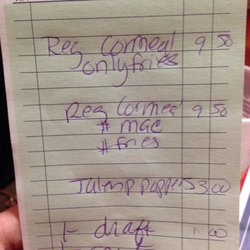 Reg Cormeal 9 50
only fries
Reg Cormeal 9 50
# mac
# fries
Jalenp poppers 3 00
1 draft 1 00